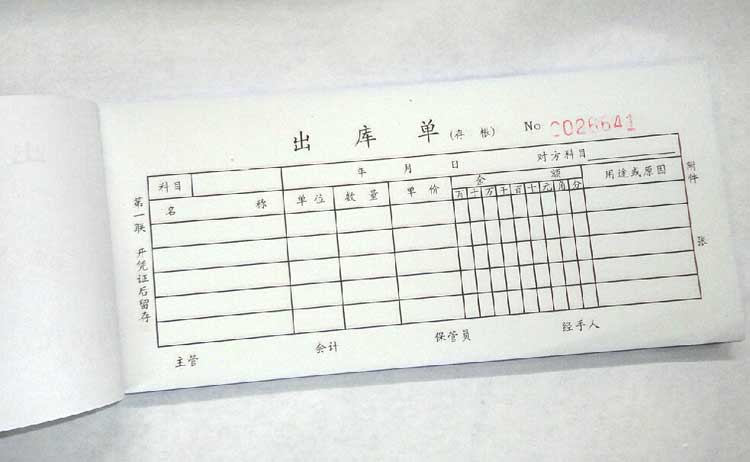 出库单(存根) No 0026641
科目 年 月 日 对方科目
名称 单位 数量 单价 金额 用途或原因
百十万千百十元角分
附件 张
第一联 开凭证后留存
主管 会计 保管员 经手人